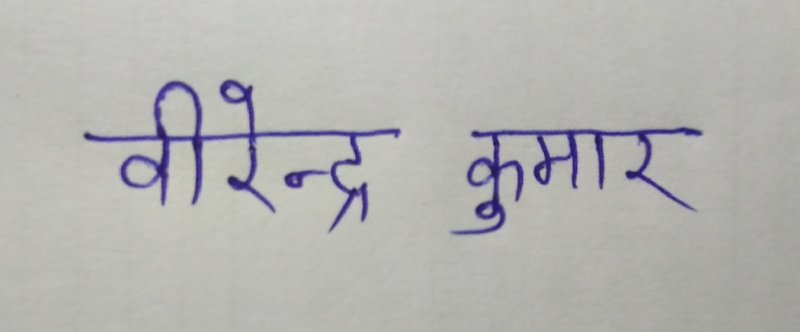 वीरेन्द्र कुमार